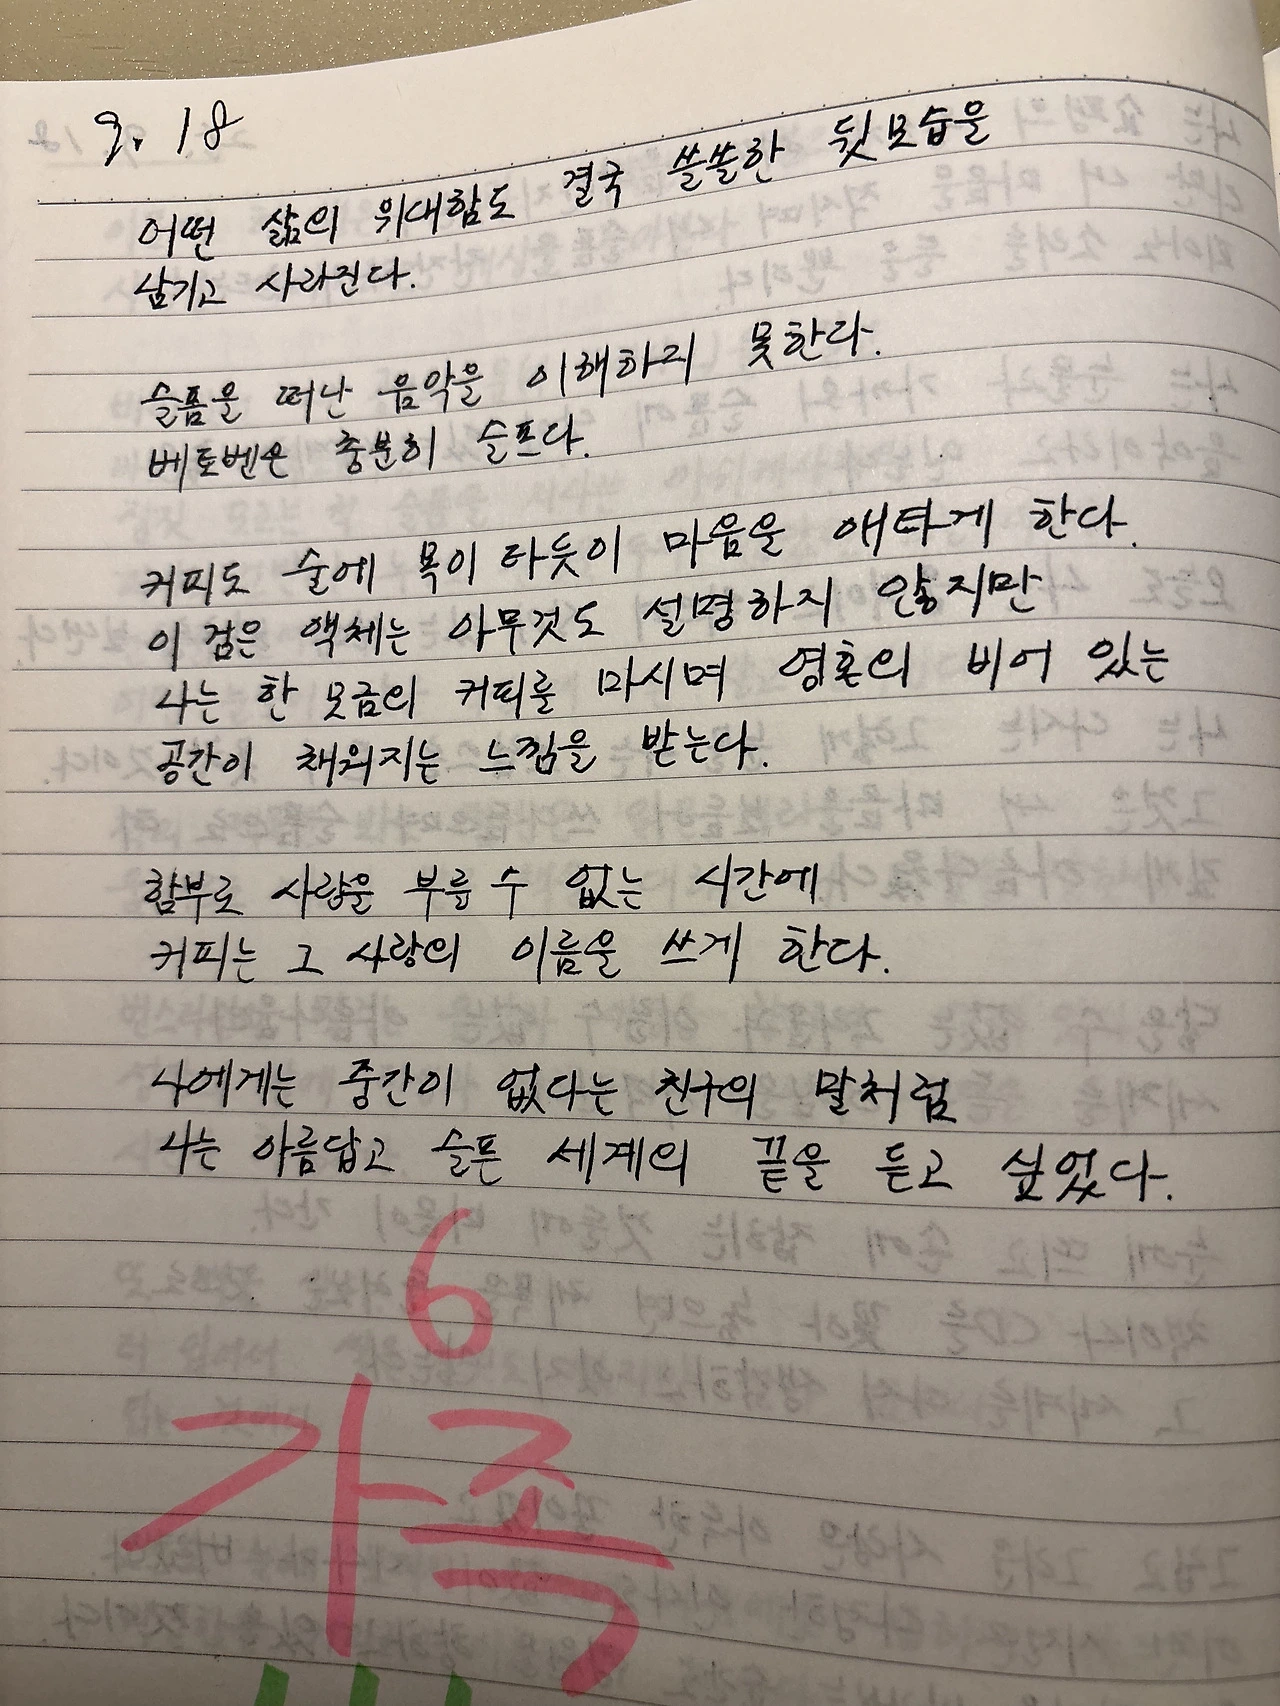 9. 18
어떤 삶의 위대함도 결국 쓸쓸한 뒷모습을
남기고 사라진다.
슬픔을 떠난 음악을 이해하지 못한다.
베토벤은 충분히 슬프다.
커피도 술에 목이 타듯이 마음을 애타게 한다.
이 검은 액체는 아무것도 설명하지 않지만
나는 한 모금의 커피를 마시며 영혼의 비어 있는
공간이 채워지는 느낌을 받는다.
함부로 사랑을 부를 수 없는 시간에
커피는 그 사랑의 이름을 쓰게 한다.
나에게는 중간이 없다는 친구의 말처럼
나는 아름답고 슬픈 세계의 끝을 듣고 싶었다.
6
가족